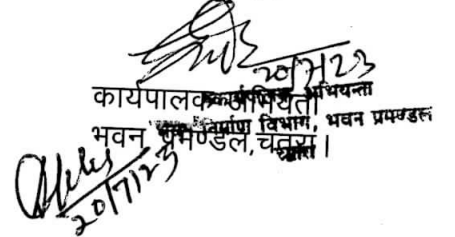 20/7/23
कार्यपालक अभियंता
कार्यपालक अभियन्ता
भवन निर्माण विभाग, भवन प्रमण्डल
भवन प्रमण्डल, चतरा।
चतरा
20/7/23